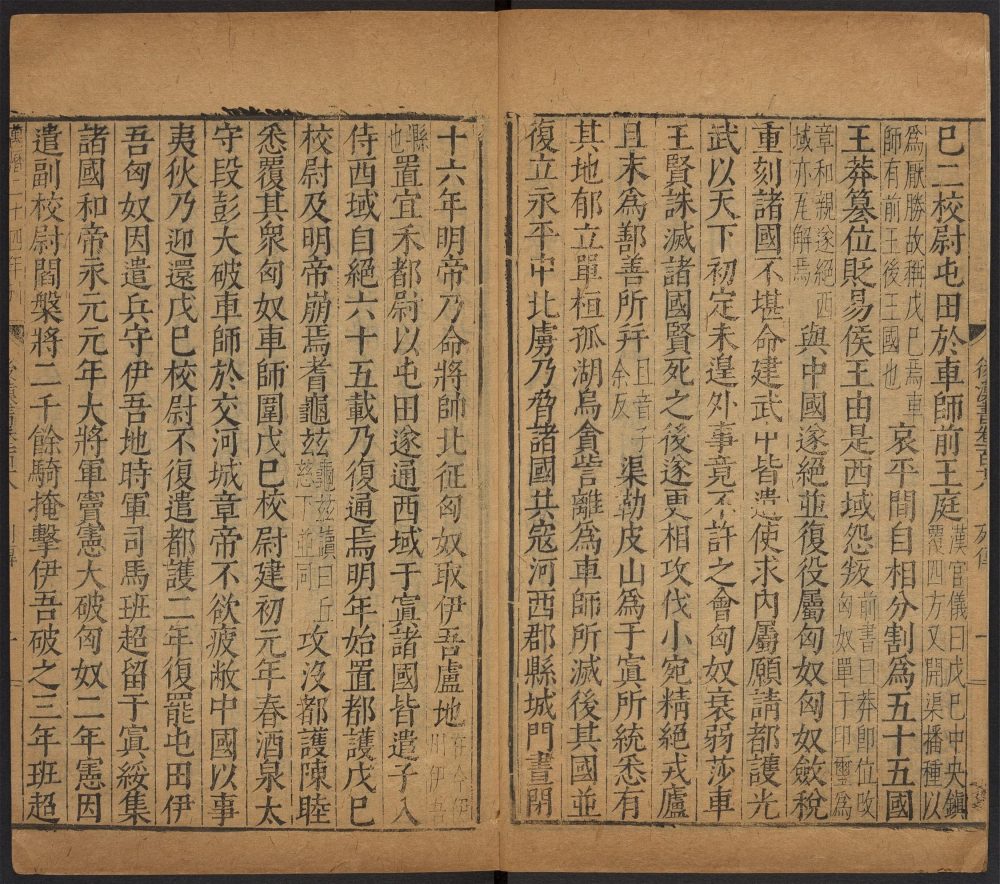 巳二校尉屯田於車師前王庭漢官儀曰戊巳中央鎮覆四方又開渠播種以
爲厭勝故稱戊巳焉車師有前王後王國也哀平間自相分割爲五十五國
王莽簒位貶易侯王由是西域怨叛前書曰莽即位改匈奴單于印璽爲
章和親遂絕西域亦瓦解焉與中國遂絕並復役屬匈奴匈奴斂稅
重刻諸國不堪命建武中皆遣使求內屬願請都護光
武以天下初定未遑外事竟不許之會匈奴衰弱莎車
王賢誅滅諸國賢死之後遂更相攻伐小宛精絕戎盧
且末爲鄯善所并且音子余反渠勒皮山爲于窴所統悉有
其地郁立單桓孤湖烏貪訾離爲車師所滅後其國並
復立永平中北虜乃脅諸國共寇河西郡縣城門晝閉
後漢書卷百十八
列傳
一
十六年明帝乃命將帥北征匈奴取伊吾盧地在今伊州伊吾
縣也置宜禾都尉以屯田遂通西域于窴諸國皆遣子入
侍西域自絕六十五載乃復通焉明年始置都護戊巳
校尉及明帝崩焉耆龜兹龜兹讀曰丘慈下並同攻沒都護陳睦
悉覆其衆匈奴車師圍戊巳校尉建初元年春酒泉太
守段彭大破車師於交河城章帝不欲疲敝中國以事
夷狄乃迎還戊巳校尉不復遣都護二年復罷屯田伊
吾匈奴因遣兵守伊吾地時軍司馬班超留于窴綏集
諸國和帝永元元年大將軍竇憲大破匈奴二年憲因
遣副校尉閻槃將二千餘騎掩擊伊吾破之三年班超